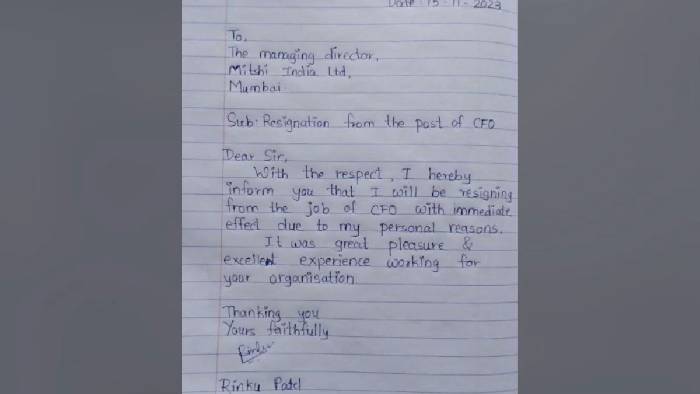 Date : 15 - 11 - 2023
To,
The managing director,
Mitshi India Ltd,
Mumbai
Sub: Resignation from the post of CFO
Dear Sir,
With the respect, I hereby
inform you that I will be resigning
from the job of CFO with immediate
effect due to my personal reasons.
It was great pleasure &
excellent experience working for
your organisation
Thanking you
Yours faithfully
Rinku
Rinku Patel